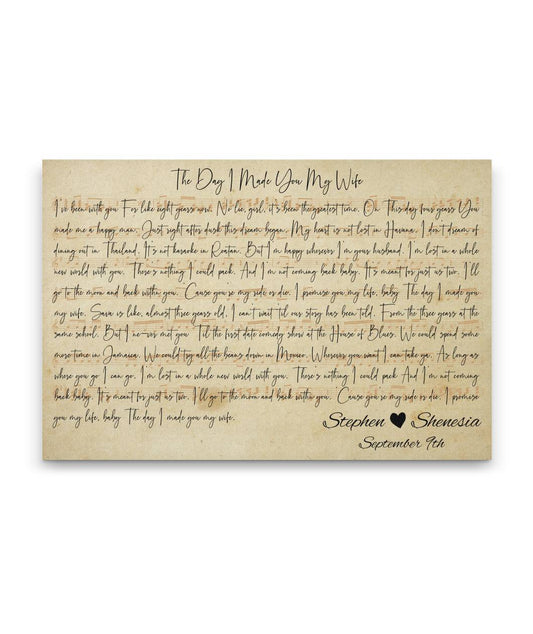 The Day I Made You My Wife
I've been with you For like eight years now. No lie, girl, it's been the greatest time. On This day four years You
made me a happy man. Just right after dusk this dream began. My heart is not lost in Havana, I don't dream of
dining out in Thailand. It's not karaoke in Roatan. But I'm happy wherever I'm your husband. I'm lost in a whole
new world with you. There's nothing I could pack. And I'm not coming back baby. It's meant for just us two. I'll
go to the moon and back with you. Cause you're my side or die. I promise you my life, baby The day I made you
my wife. Sava is like, almost three years old. I can't wait til our story has been told. From the three years at the
same school. But I never met you 'Til the first date comedy show at the House of Blues. We could spend some
more time in Jamaica. We could try all the beans down in Mexico. Wherever you want I can take ya. As long as
where you go I can go. I'm lost in a whole new world with you. There's nothing I could pack And I'm not coming
back baby. It's meant for just us two. I'll go to the moon and back with you. Cause you're my side or die. I promise
you my life, baby The day I made you my wife.
Stephen Shenesia
September 9th